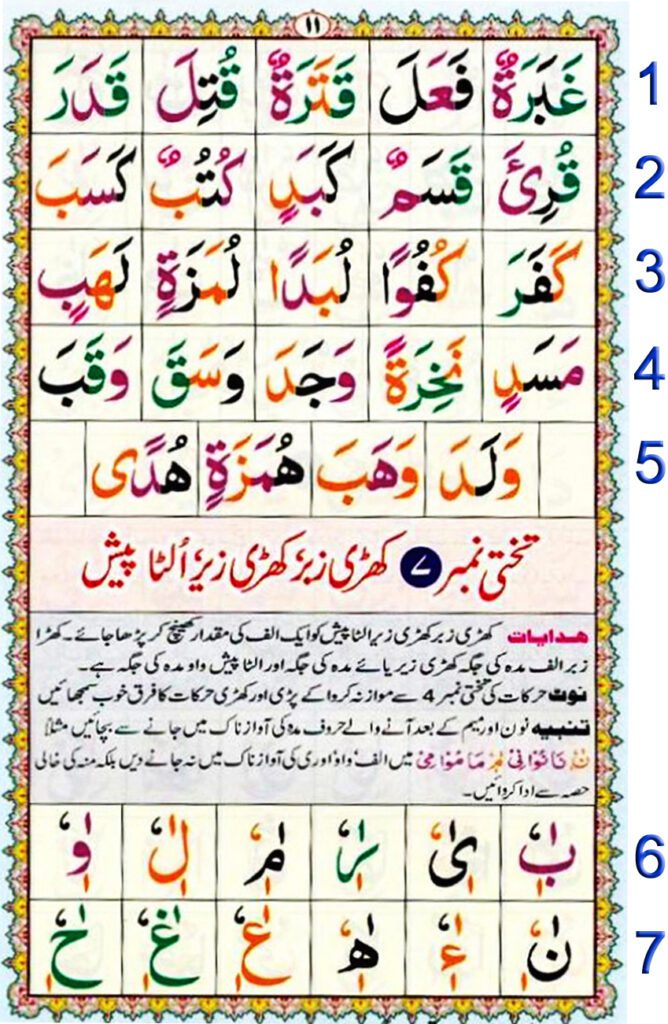 ١١
غَبَرَةٌ فَعَلَ قَتَرَةٌ قُتِلَ قَدَرَ 1
قُرِئَ قَسَمٌ كَبَدٍ كُتُبٌ كَسَبَ 2
كَفَرَ كُفُوًا لُبَدًا لُمَزَةٍ لَهَبٍ 3
مَسَدٍ نَخِرَةً وَجَدَ وَسَقَ وَقَبَ 4
وَلَدَ وَهَبَ هُمَزَةٍ هُدًى 5
تختی نمبر ۷ کھڑی زبر، کھڑی زیر، اُلٹا پیش
ھدایات کھڑی زبر کھڑی زیر الٹا پیش کو ایک الف کی مقدار کھینچ کر پڑھا جائے۔ کھڑا
زبر الف مدہ کی جگہ کھڑی زیر یائے مدہ کی جگہ اور الٹا پیش واو مدہ کی جگہ ہے۔
نوٹ حرکات کی تختی نمبر 4 سے موازنہ کروا کے پڑی اور کھڑی حرکات کا فرق خوب سمجھائیں
تنبیہ نون اور میم کے بعد آنے والے حروف مدہ کی آواز ناک میں جانے سے بچائیں مثلاً
نٌ نَا نُوْا نِیْ مٌ مَا مُوْا مِیْ میں الف واو اور ی کی آواز ناک میں نہ جانے دیں بلکہ منہ کی خالی
حصہ سے ادا کروائیں۔
بٰٖٗ یٰٖٗ رٰٖٗ مٰٖٗ لٰٖٗ وٰٖٗ 6
نٰٖٗ ءٰٖٗ ھٰٖٗ عٰٖٗ غٰٖٗ حٰٖٗ 7